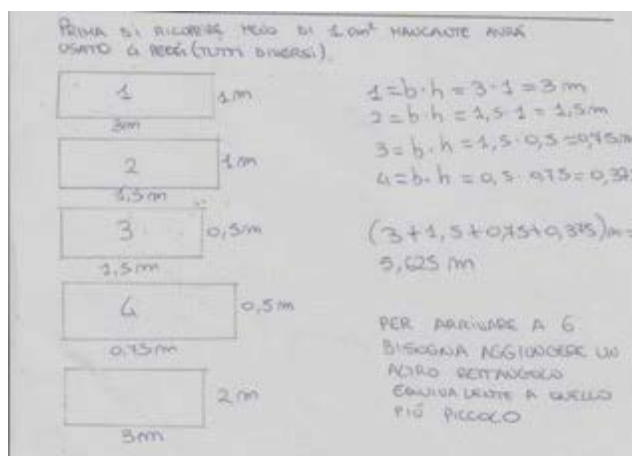 PRIMA DI RICOPRIRE MENO DI 1 cm² MANCANTE AVRÀ
USATO 4 PEZZI (TUTTI DIVERSI).
1
1m
3m
2
1m
1,5m
3
0,5m
1,5m
4
0,5m
0,75m
2m
3m
1=b·h=3·1=3m
2=b·h=1,5·1=1,5m
3=b·h=1,5·0,5=0,75m
4=b·h=0,5·0,75=0,375
(3+1,5+0,75+0,375)m=
5,625 m
PER ARRIVARE A 6
BISOGNA AGGIUNGERE UN
ALTRO RETTANGOLO
EQUIVALENTE A QUELLO
PIÙ PICCOLO